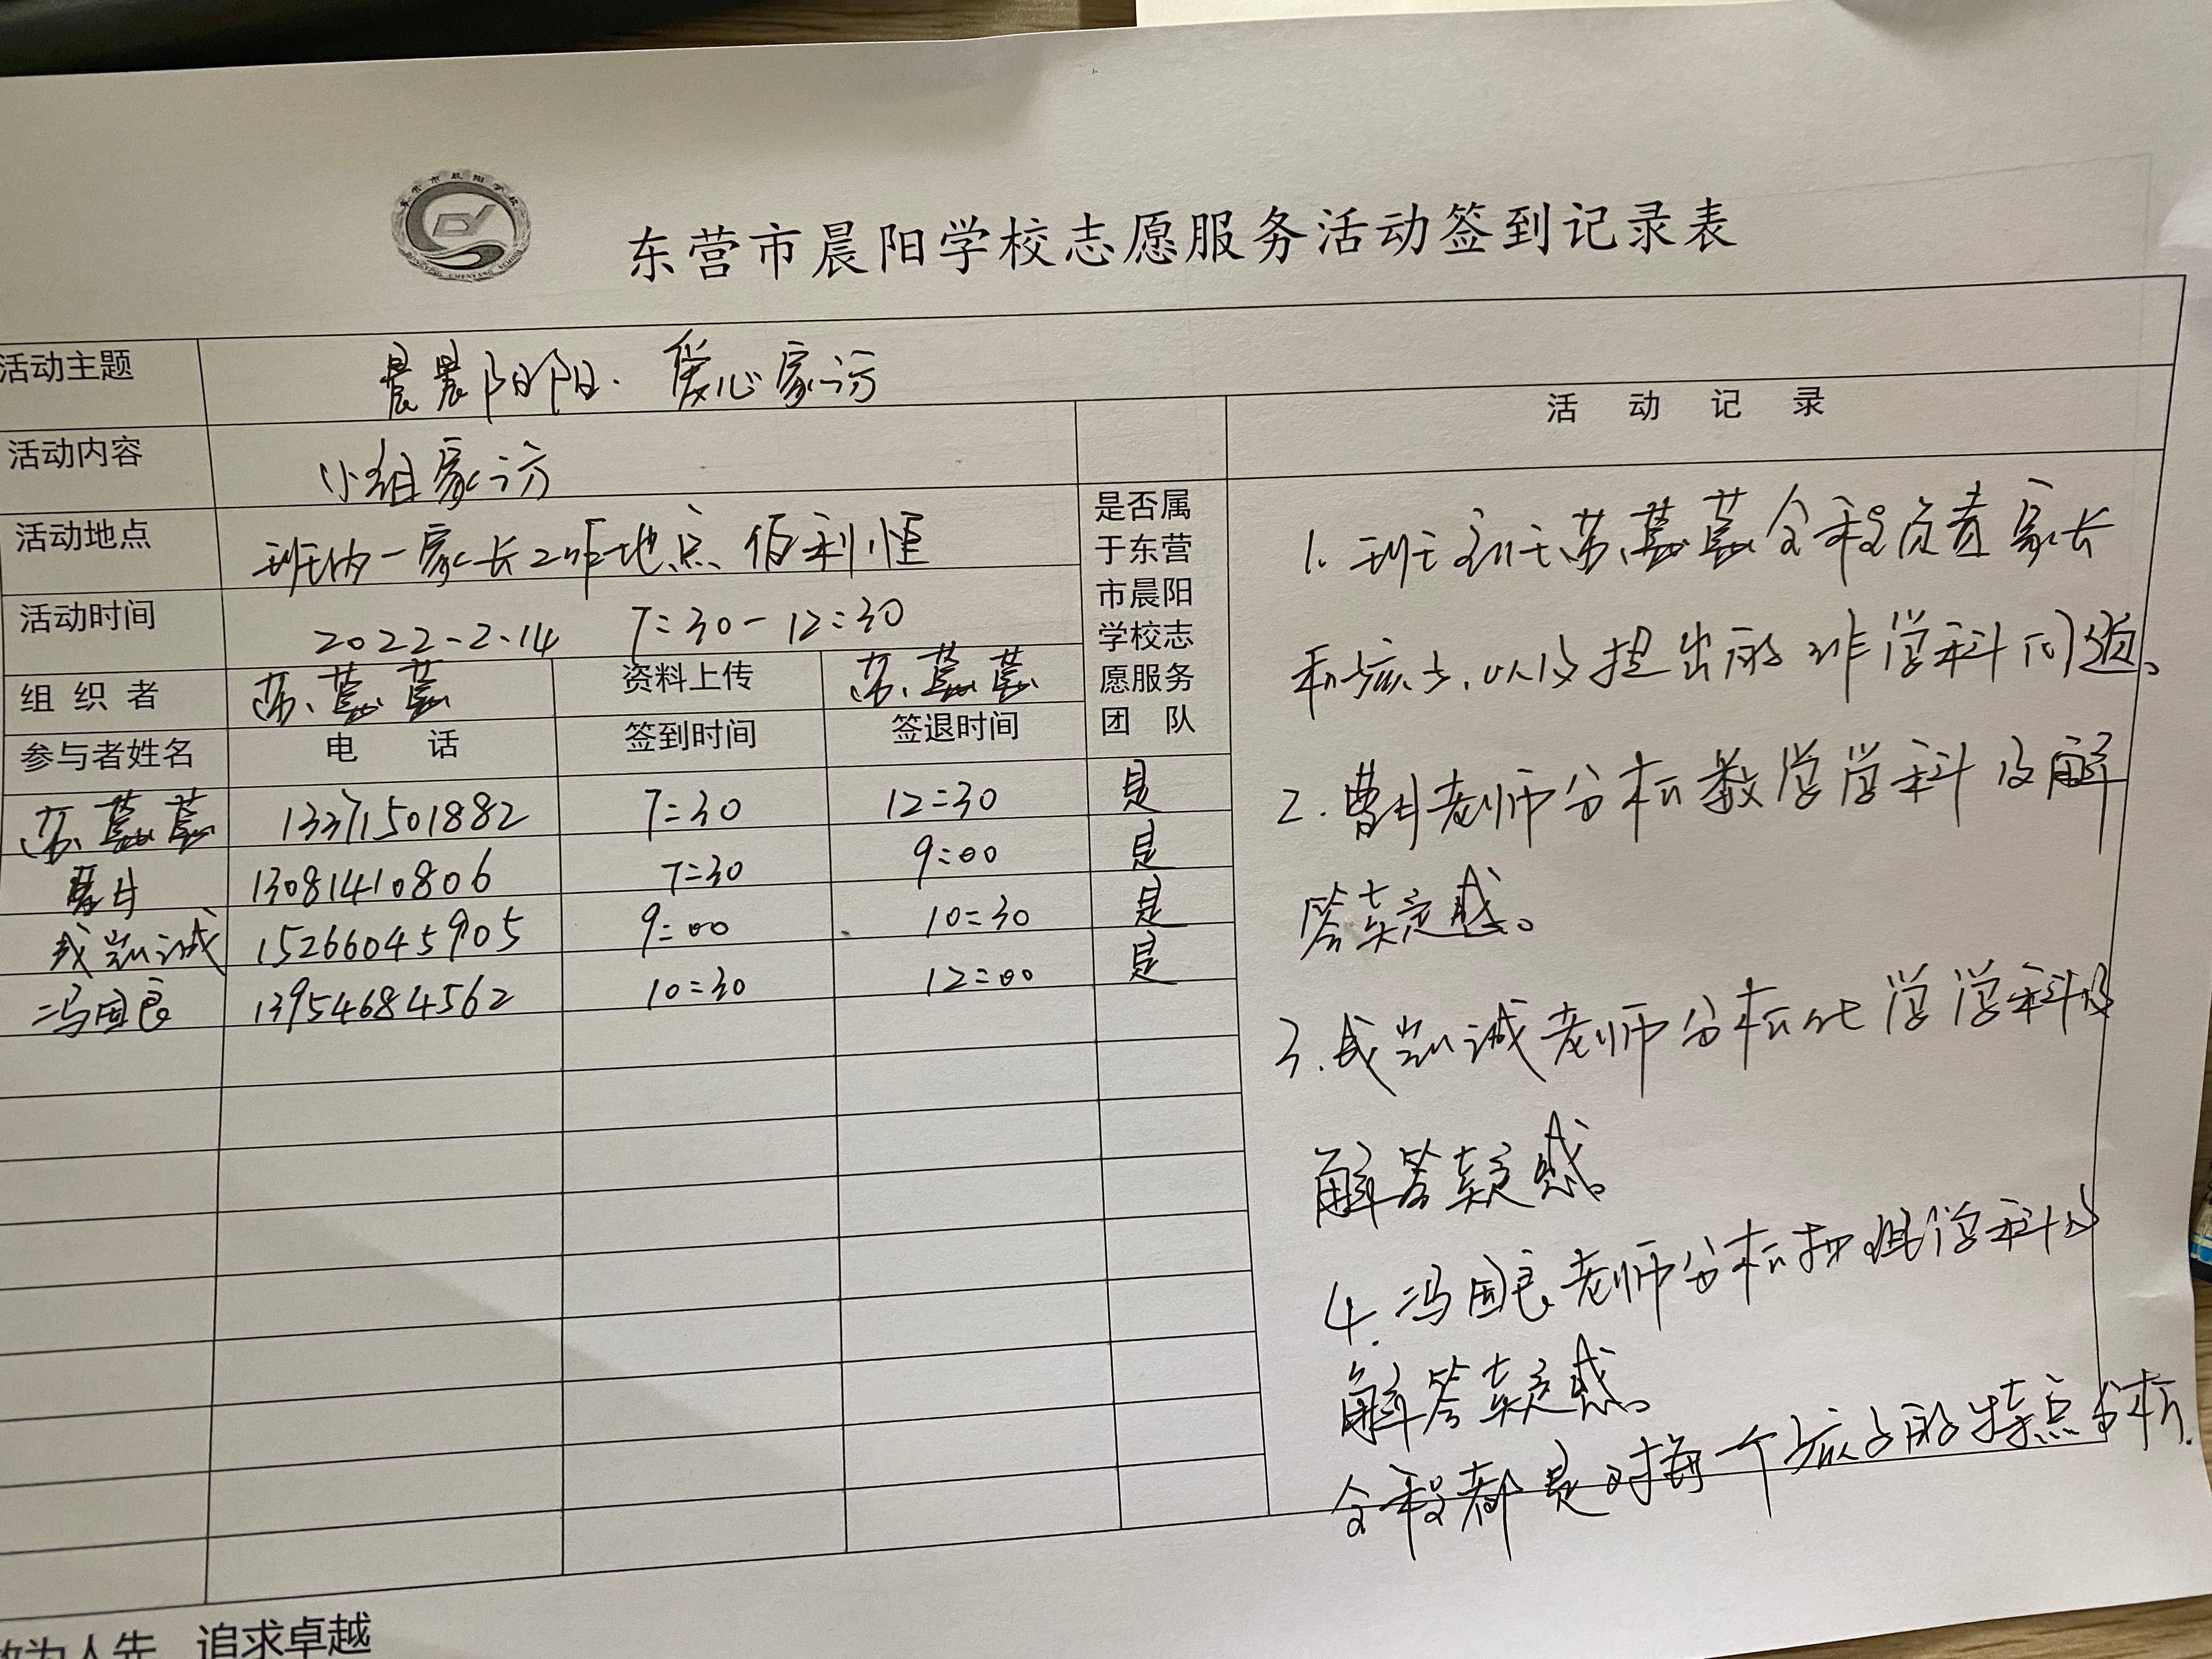 东营市晨阳学校志愿服务活动签到记录表
活动主题 晨晨阳阳·爱心家访
活动内容 小组家访
活动地点 班内一家长工作地点 佰利恒
活动时间 2022-2-14 7:30-12:30
组织者 苏 资料上传 苏
参与者姓名 电 话 签到时间 签退时间
是否属
于东营
市晨阳
学校志
愿服务
团 队
苏 13371501882 7:30 12:30 是
13081410806 7:30 9:00 是
成凯诚 15266045905 9:00 10:30 是
冯国良 13954684562 10:30 12:00 是
活 动 记 录
1. 班主任苏 全程负责家长
和孩子,以及提出的非学科问题。
2. 曹 老师分析数学学科及解
答疑惑。
3. 成凯诚老师分析化学学科及
解答疑惑。
4. 冯国良老师分析物理学科及
解答疑惑。
全程都是对每一个孩子的特点分析.
敢为人先 追求卓越